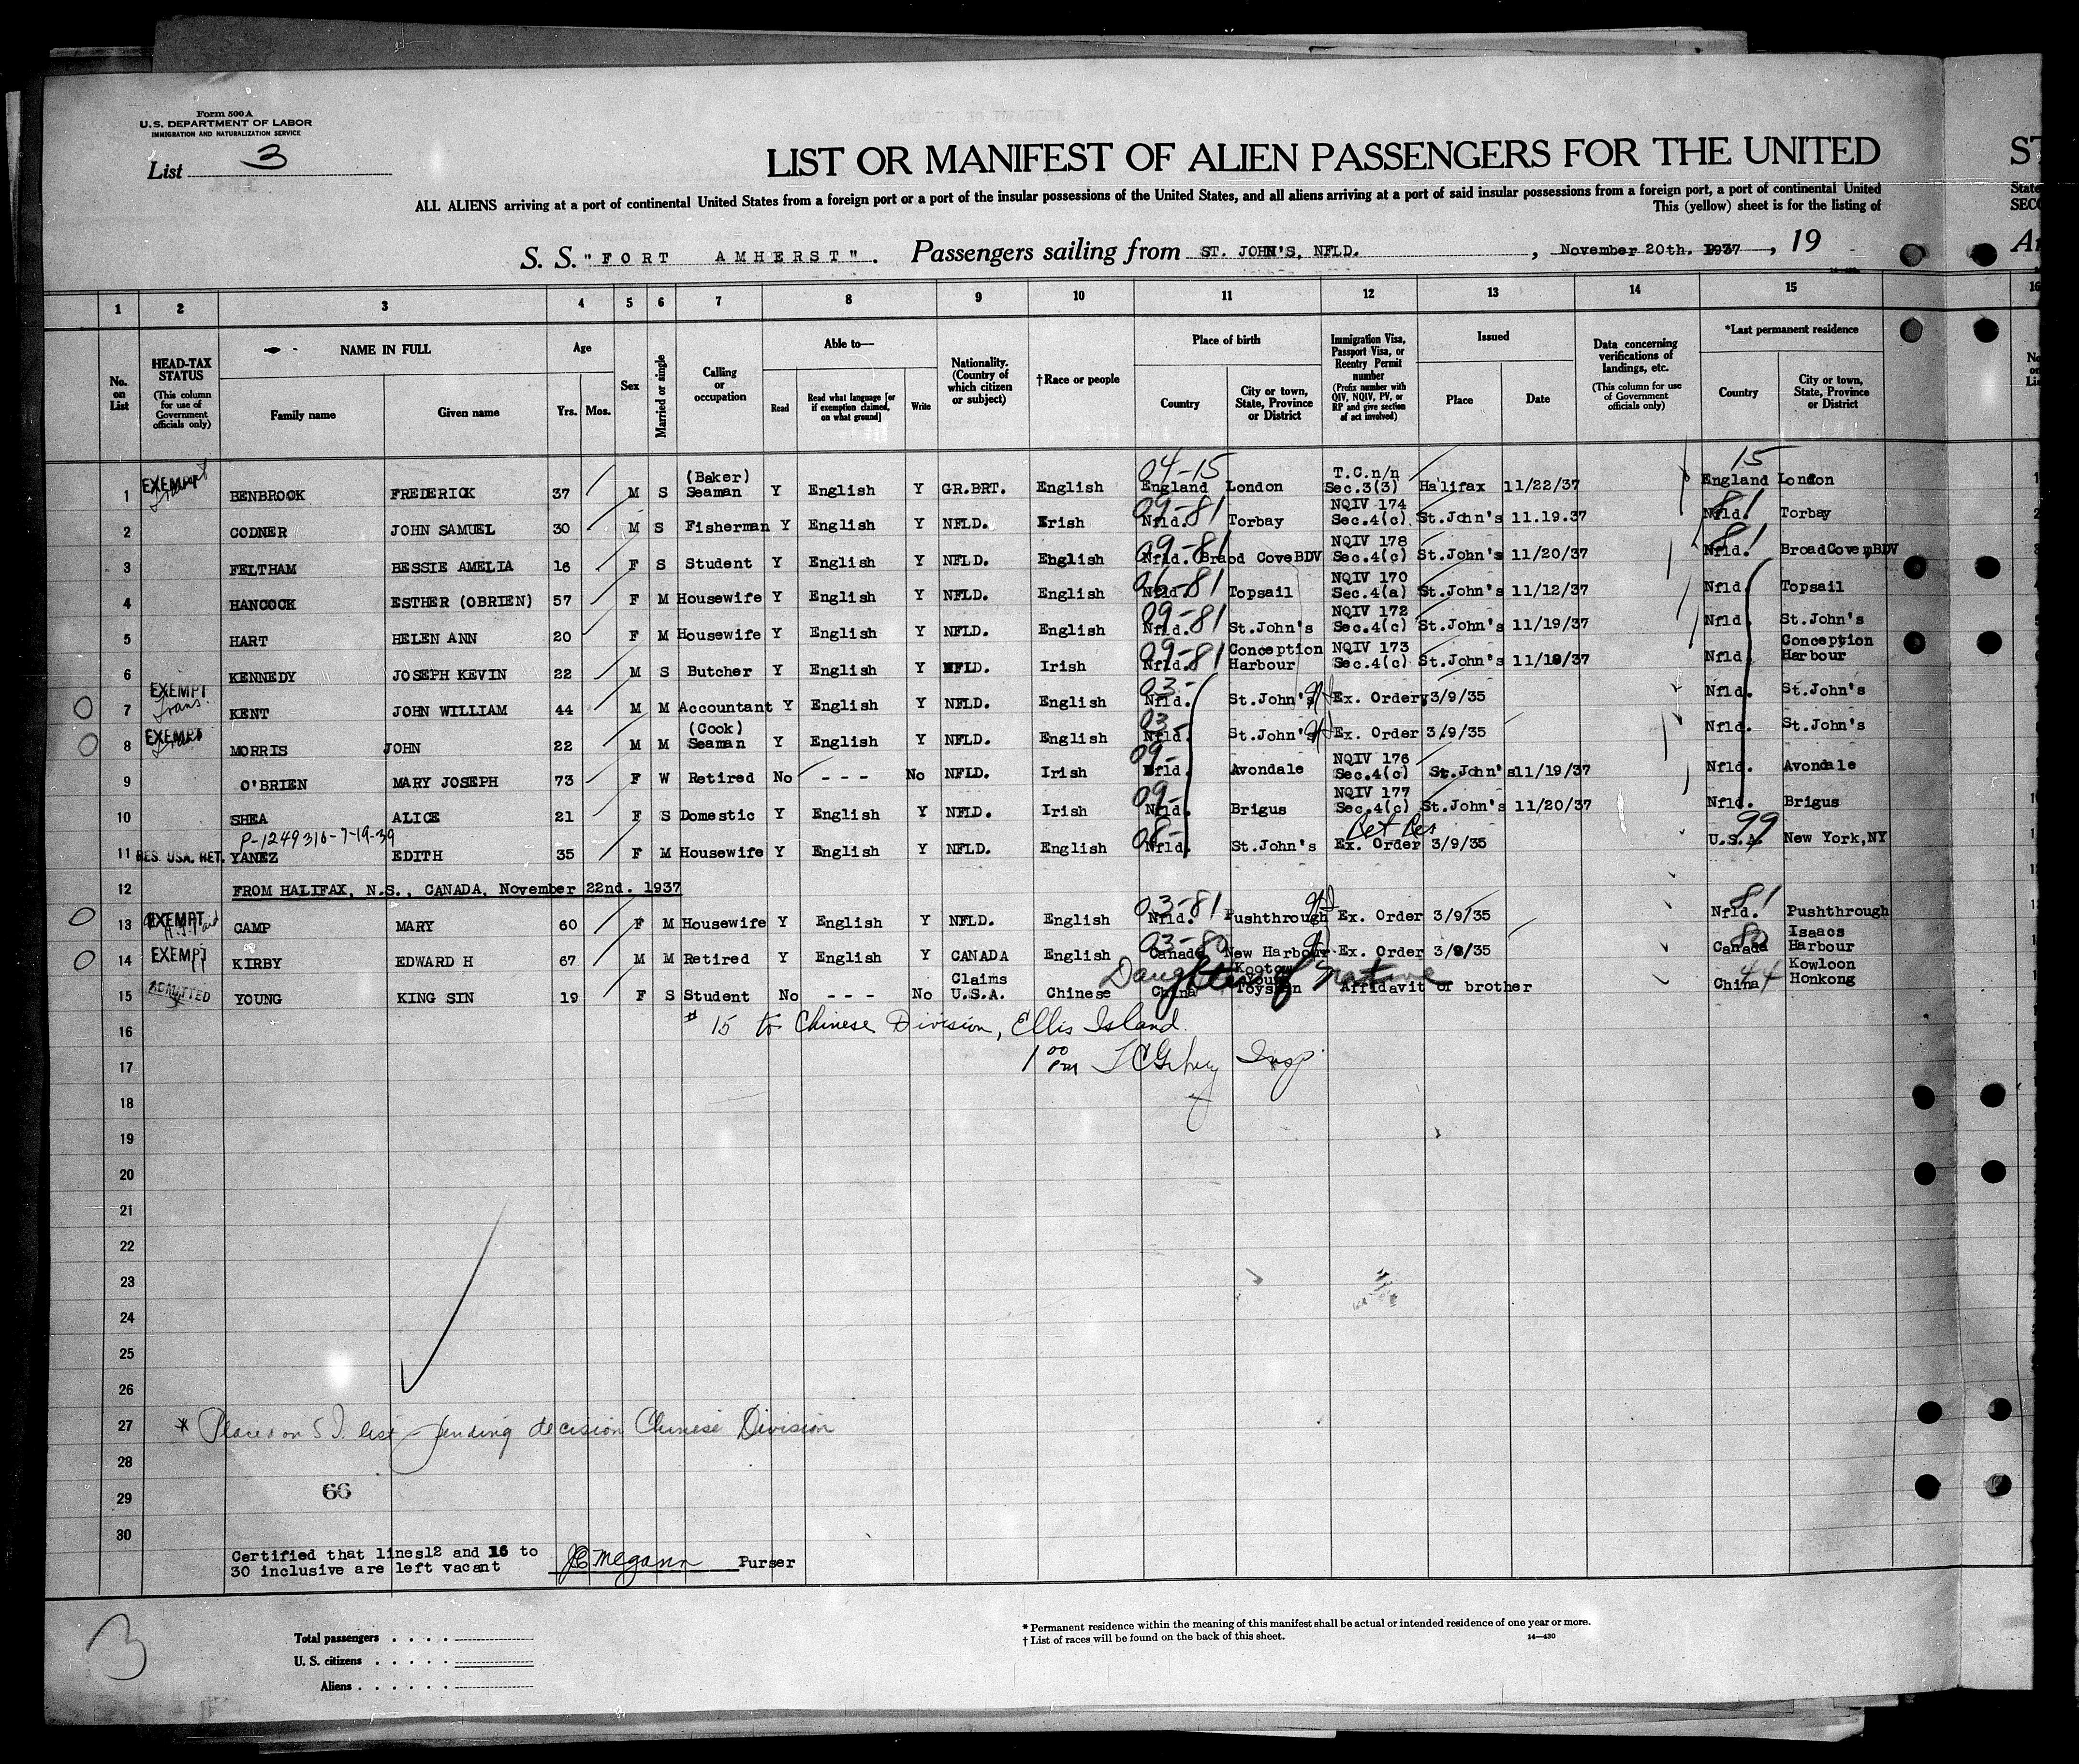 Form 500 A
U. S. DEPARTMENT OF LABOR
IMMIGRATION AND NATURALIZATION SERVICE
List 3
LIST OR MANIFEST OF ALIEN PASSENGERS FOR THE UNITED
ALL ALIENS arriving at a port of continental United States from a foreign port or a port of the insular possessions of the United States, and all aliens arriving at a port of said insular possessions from a foreign port, a port of continental United
This (yellow) sheet is for the listing of
S. S. "FORT AMHERST". Passengers sailing from ST. JOHN'S, NFLD. , November 20th. 1937 , 19
1 2 3 4 5 6 7 8 9 10 11 12 13 14 15
No. on List
HEAD-TAX STATUS (This column for use of Government officials only)
NAME IN FULL
Family name Given name
Age
Yrs. Mos.
Sex
Married or single
Calling or occupation
Able to—
Read
Read what language [or if exemption claimed, on what ground]
Write
Nationality. (Country of which citizen or subject)
†Race or people
Place of birth
Country
City or town, State, Province or District
Immigration Visa, Passport Visa, or Reentry Permit number (Prefix number with QIV, NQIV, PV, or RP and give section of act involved)
Issued
Place Date
Data concerning verifications of landings, etc. (This column for use of Government officials only)
*Last permanent residence
Country
City or town, State, Province or District
1 EXEMPT BENBROOK FREDERICK 37 M S (Baker) Seaman Y English Y GR.BRT. English 04-15 England London T.C.n/n Sec.3(3) Halifax 11/22/37 15 England London
2 CODNER JOHN SAMUEL 30 M S Fisherman Y English Y NFLD. Irish 09-81 Nfld. Torbay NQIV 174 Sec.4(c) St.John's 11.19.37 81 Nfld. Torbay
3 FELTHAM BESSIE AMELIA 16 F S Student Y English Y NFLD. English 09-81 Nfld. Braod CoveBDV NQIV 178 Sec.4(c) St.John's 11/20/37 81 Nfld. BroadCove BDV
4 HANCOCK ESTHER (OBRIEN) 57 F M Housewife Y English Y NFLD. English 06-81 Nfld. Topsail NQIV 170 Sec.4(a) St.John's 11/12/37 Nfld. Topsail
5 HART HELEN ANN 20 F M Housewife Y English Y NFLD. English 09-81 Nfld. St.John's NQIV 172 Sec.4(c) St.John's 11/19/37 Nfld St.John's
6 KENNEDY JOSEPH KEVIN 22 M S Butcher Y English Y NFLD. Irish 09-81 Nfld. Conception Harbour NQIV 173 Sec.4(c) St.John's 11/19/37 Nfld. Conception Harbour
7 EXEMPT Trans. KENT JOHN WILLIAM 44 M M Accountant Y English Y NFLD. English 03- Nfld. St.John's Ex. Order 3/9/35 Nfld. St.John's
8 EXEMPT MORRIS JOHN 22 M M (Cook) Seaman Y English Y NFLD. English 03- Nfld. St.John's Ex. Order 3/9/35 Nfld. St.John's
9 O'BRIEN MARY JOSEPH 73 F W Retired No - - - No NFLD. Irish 09- Nfld. Avondale NQIV 176 Sec.4(c) St.John's 11/19/37 Nfld. Avondale
10 SHEA ALICE 21 F S Domestic Y English Y NFLD. Irish 09- Nfld. Brigus NQIV 177 Sec.4(c) St.John's 11/20/37 Nfld. Brigus
P-1249316-7-19-39
11 RES. USA. RET. YANEZ EDITH 35 F M Housewife Y English Y NFLD. English 08- Nfld. St.John's Ret Res Ex. Order 3/9/35 99 U.S.A. New York,NY
12 FROM HALIFAX, N.S., CANADA, November 22nd. 1937
13 EXEMPT CAMP MARY 60 F M Housewife Y English Y NFLD. English 03-81 Nfld. Pushthrough Ex. Order 3/9/35 81 Nfld. Pushthrough
14 EXEMPT KIRBY EDWARD H 67 M M Retired Y English Y CANADA English 03-80 Canada New Harbour Ex. Order 3/9/35 80 Canada Isaacs Harbour
15 ADMITTED YOUNG KING SIN 19 F S Student No - - - No Claims U.S.A. Chinese China Toyshan Daughter of native Affidavit of brother 44 China Kowloon Honkong
16 # 15 to Chinese Division, Ellis Island.
17 1 00 PM Insp.
18
19
20
21
22
23
24
25
26
27 * Placed on S I. list - pending decision Chinese Division
28
29 66
30
Certified that lines12 and 16 to
30 inclusive are left vacant Purser
3
Total passengers . . . .
U. S. citizens . . . . .
Aliens . . . . . .
* Permanent residence within the meaning of this manifest shall be actual or intended residence of one year or more.
† List of races will be found on the back of this sheet. 14—430